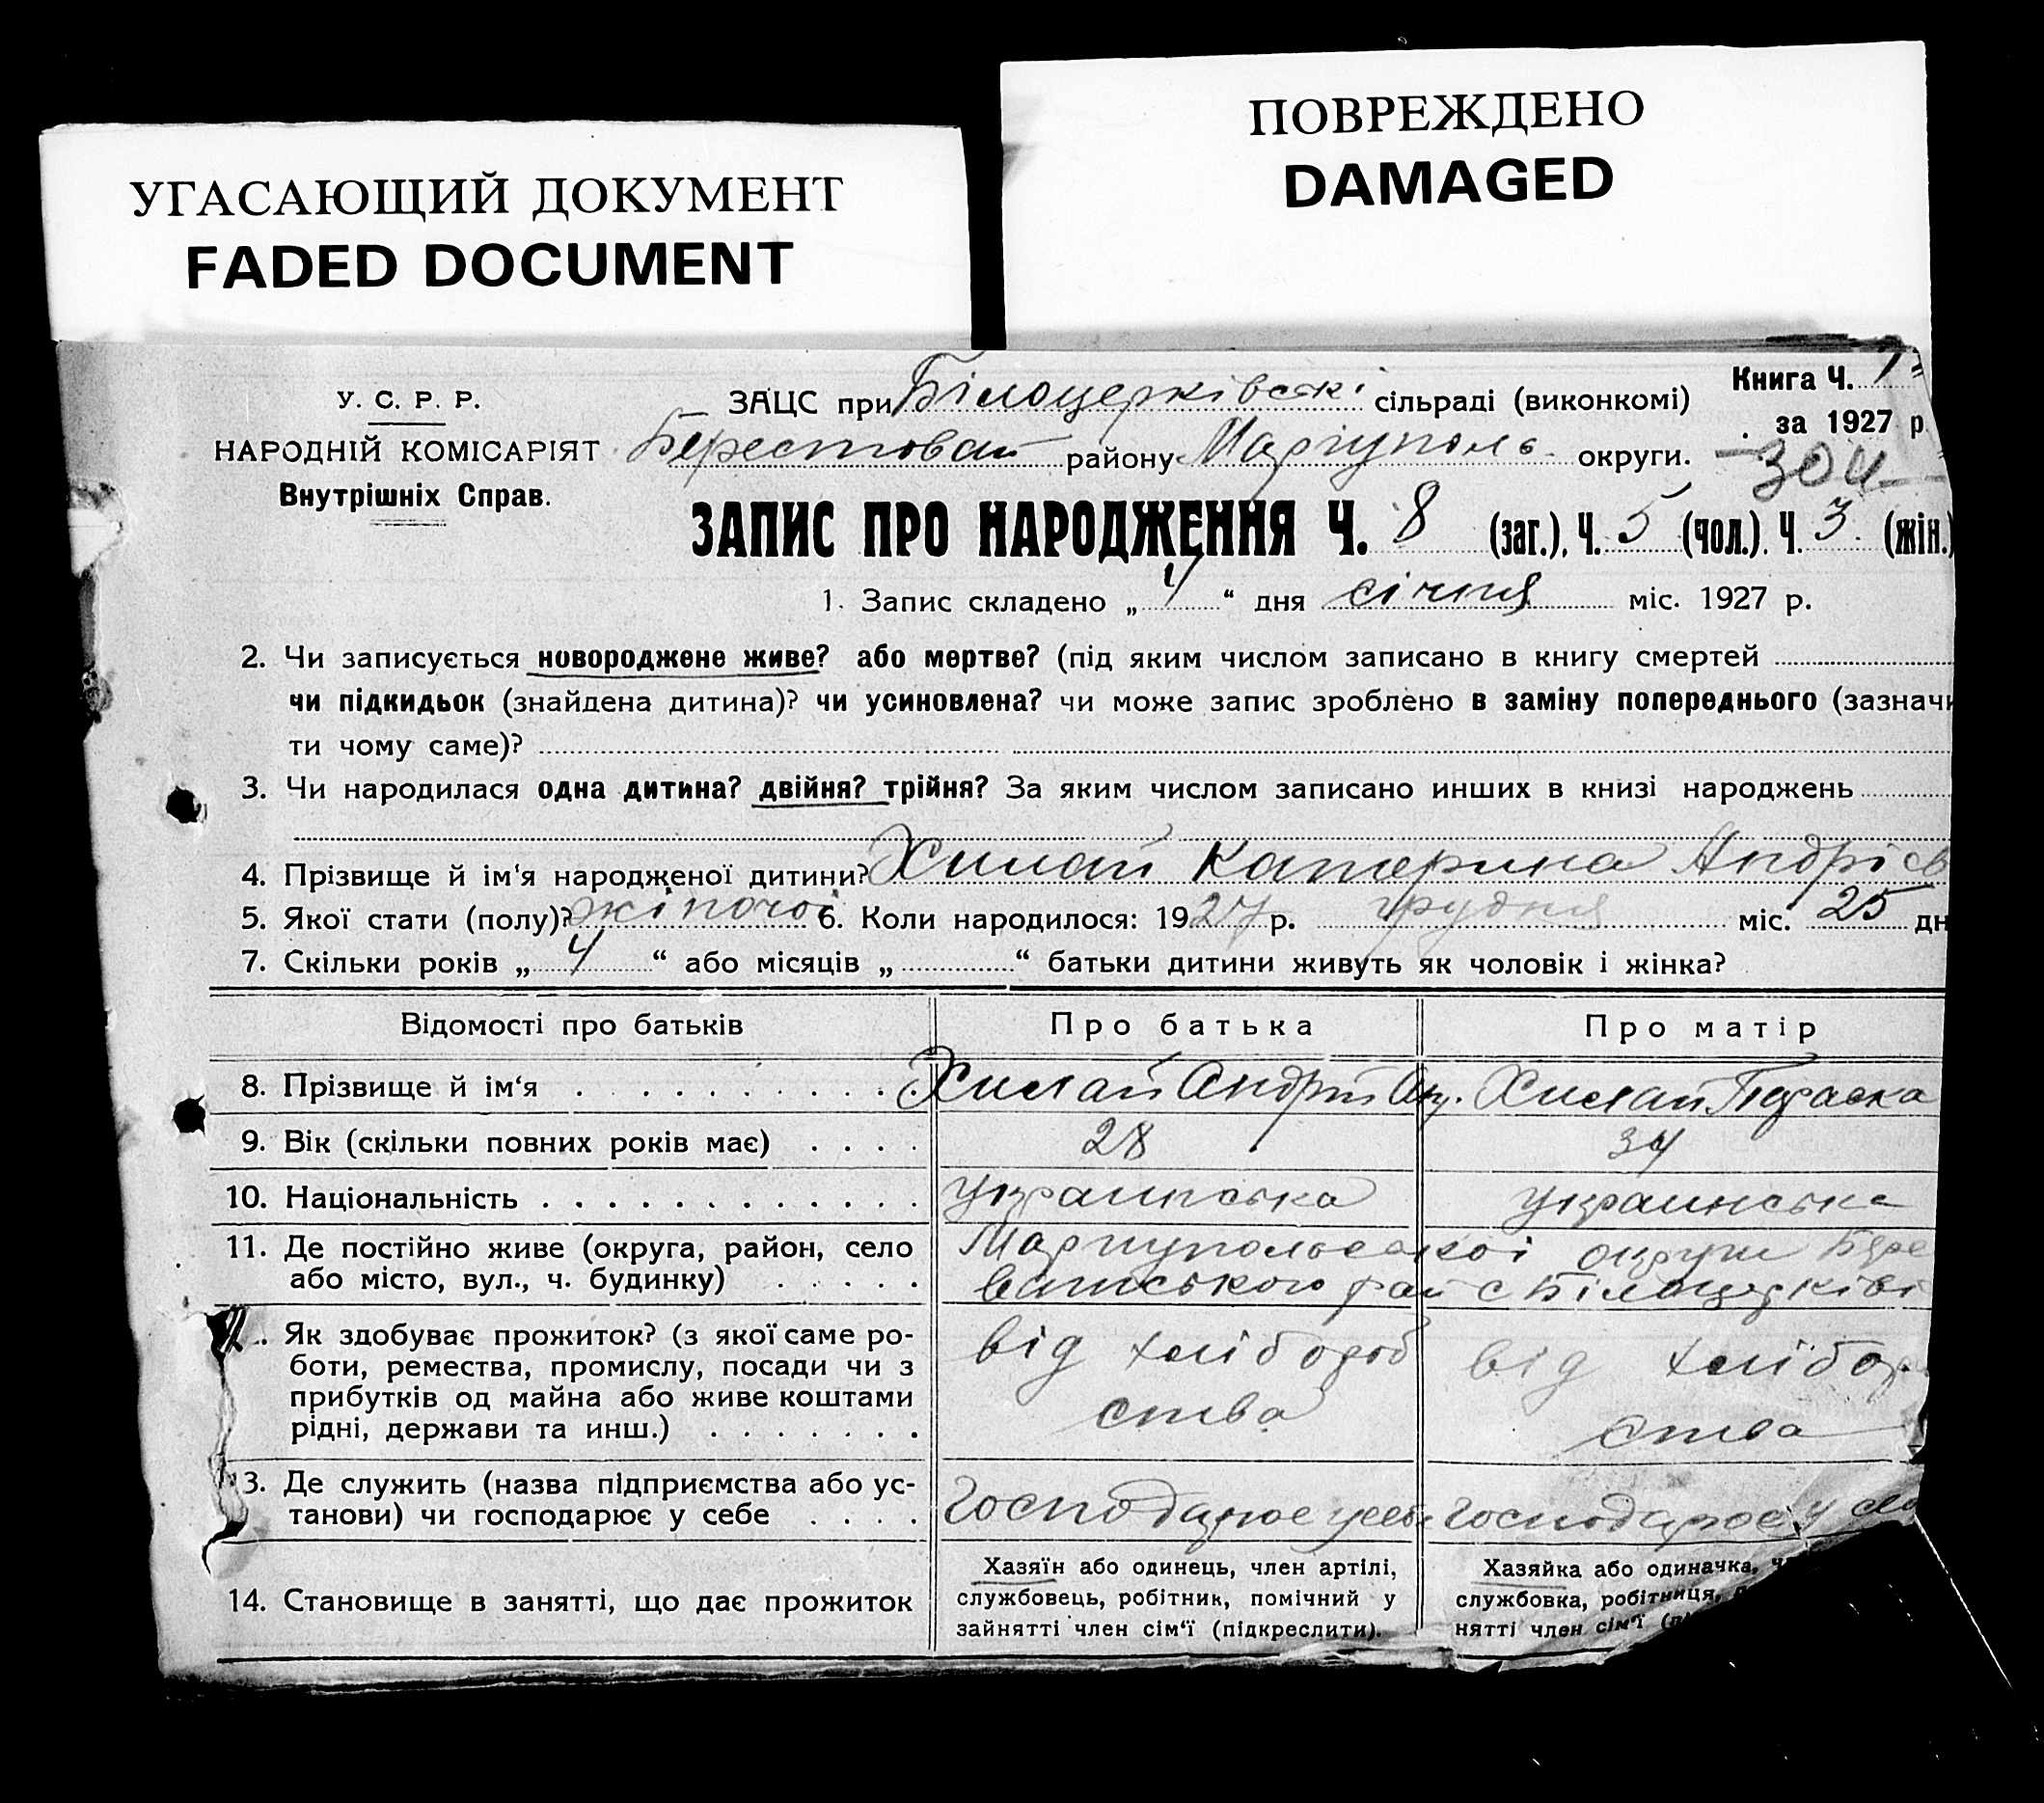 УГАСАЮЩИЙ ДОКУМЕНТ
FADED DOCUMENT
ПОВРЕЖДЕНО
DAMAGED
У. С. Р. Р.
НАРОДНІЙ КОМІСАРІЯТ
Внутрішніх Справ.
Книга Ч. 1
за 1927 р
304
ЗАЦС при Білоцерківські сільраді (виконкомі)
Берестовай району Маріуполь округи.
ЗАПИС ПРО НАРОДЖЕННЯ Ч. 8 (заг.), Ч. 5 (чол.). Ч. 3. (жін.)
1. Запис складено „ 4 “ дня січня міс. 1927 р.
2. Чи записується новороджене живе? або мертве? (під яким числом записано в книгу смертей
чи підкидьок (знайдена дитина)? чи усиновлена? чи може запис зроблено в заміну попереднього (зазначи
ти чому саме)?
3. Чи народилася одна дитина? двійня? трійня? За яким числом записано инших в книзі народжень
4. Прізвище й ім‘я народженої дитини? Хилай Катерина Андрієв
5. Якої стати (полу)? жіночої 6. Коли народилося: 1927 р. грудня міс. 25 дн
7. Скільки років „ 4 “ або місяців „ “ батьки дитини живуть як чоловік і жінка?
Відомості про батьків Про батька Про матір
8. Прізвище й ім‘я Хилай Андрій Ан. Хилай Параска
9. Вік (скільки повних років має) 28 34
10. Національність украинська украинська
11. Де постійно живе (округа, район, село Мариупольської округи Бере
або місто, вул., ч. будинку) ватського рай с Білоцерківі
Як здобуває прожиток? (з якої саме ро-
боти, ремества, промислу, посади чи з
прибутків од майна або живе коштами
рідні, держави та инш.)
від хлібороб
ства
від хлібор
ства
13. Де служить (назва підприємства або ус-
танови) чи господарює у себе
Господарює у себе Господарює у се
14. Становище в занятті, що дає прожиток
Хазяїн або одинець, член артілі,
службовець, робітник, помічний у
зайнятті член сім‘ї (підкреслити).
Хазяйка або одиначка,
службовка, робітниця,
нятті член сім‘ї